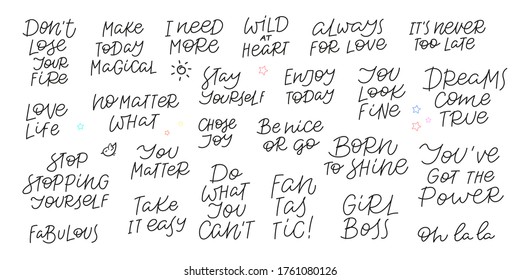 Don't
Lose
your
fire
Make
today
magical
I need
more
Wild
at
heart
Always
for love
It's never
too late
Love
life
No matter
what
Stay
yourself
Enjoy
today
You
look
fine
Dreams
come
true
Chose
joy
Be nice
or go
Stop
stopping
yourself
You
matter
Do
what
you
can't
Fan
tas
tic!
Born
to shine
You've
got the
power
Fabulous
Take
it easy
Girl
boss
Oh la la
shutterstock
IMAGE ID: 1761080126
www.shutterstock.com